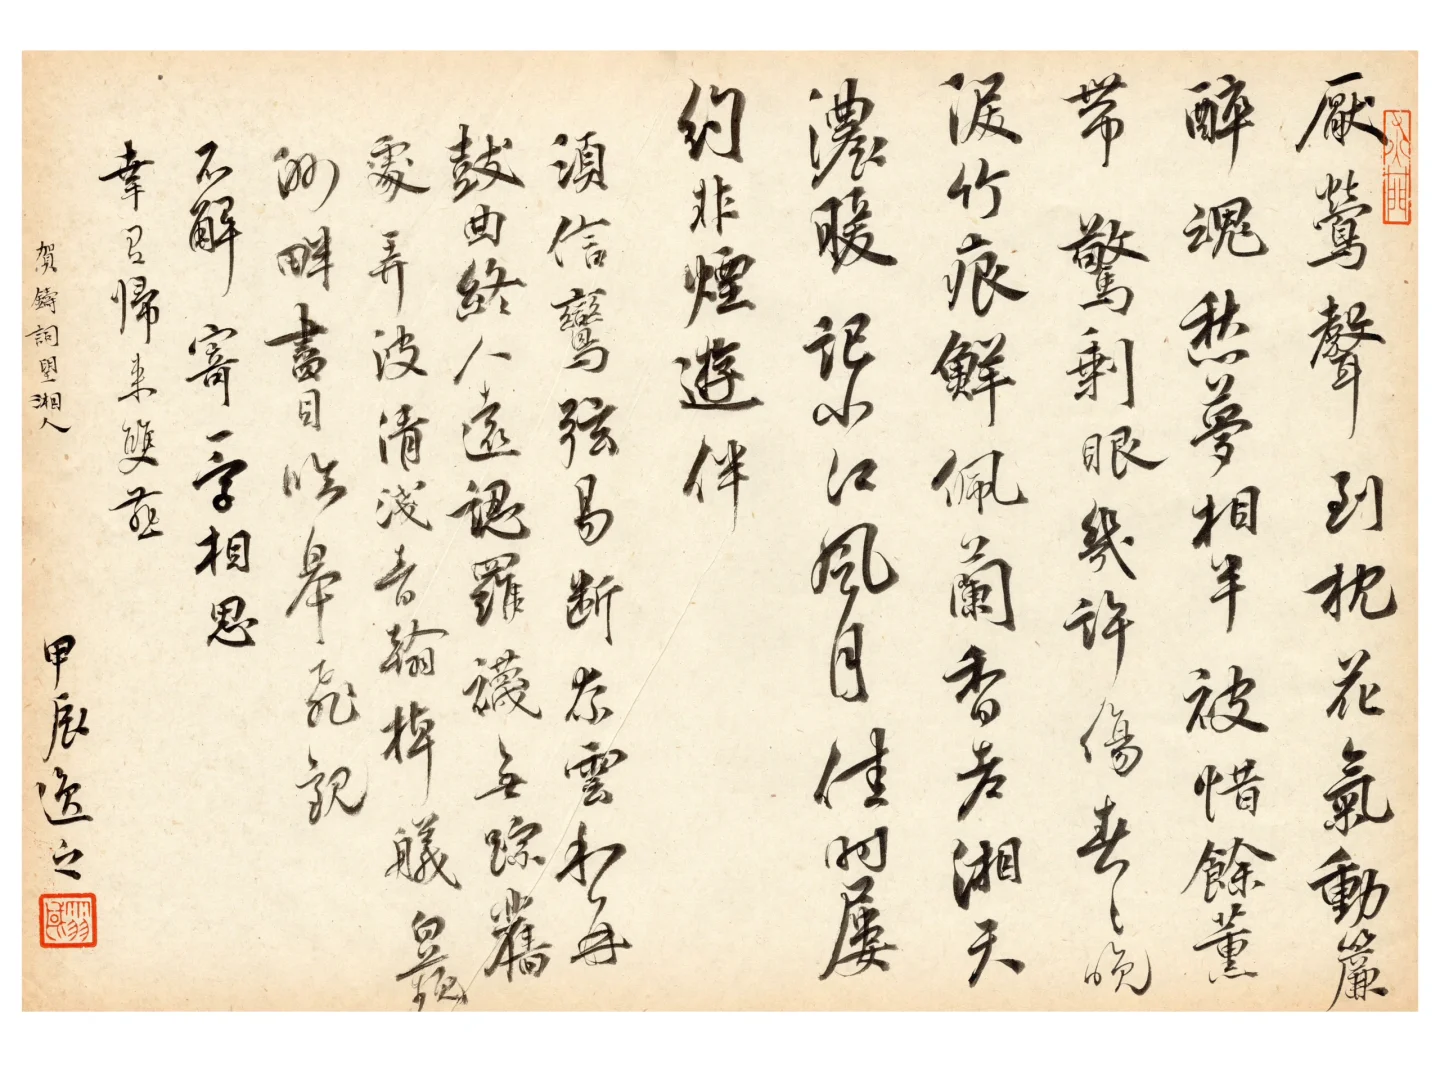 厭鶯聲到枕花氣動簾
醉魂愁夢相半被惜餘薰
帶驚剩眼幾許傷春〻晚
淚竹痕鮮佩蘭香老湘天
濃暖記小江風月佳時屢
約非煙遊伴
須信鸞弦易断奈雲和再
鼓曲終人遠認羅襪無踪舊
處弄波清淺青翰棹艤白蘋
洲畔盡目臨皋飛觀
不解寄一字相思
幸有歸來雙燕
賀鑄詞望湘人
甲辰逸之